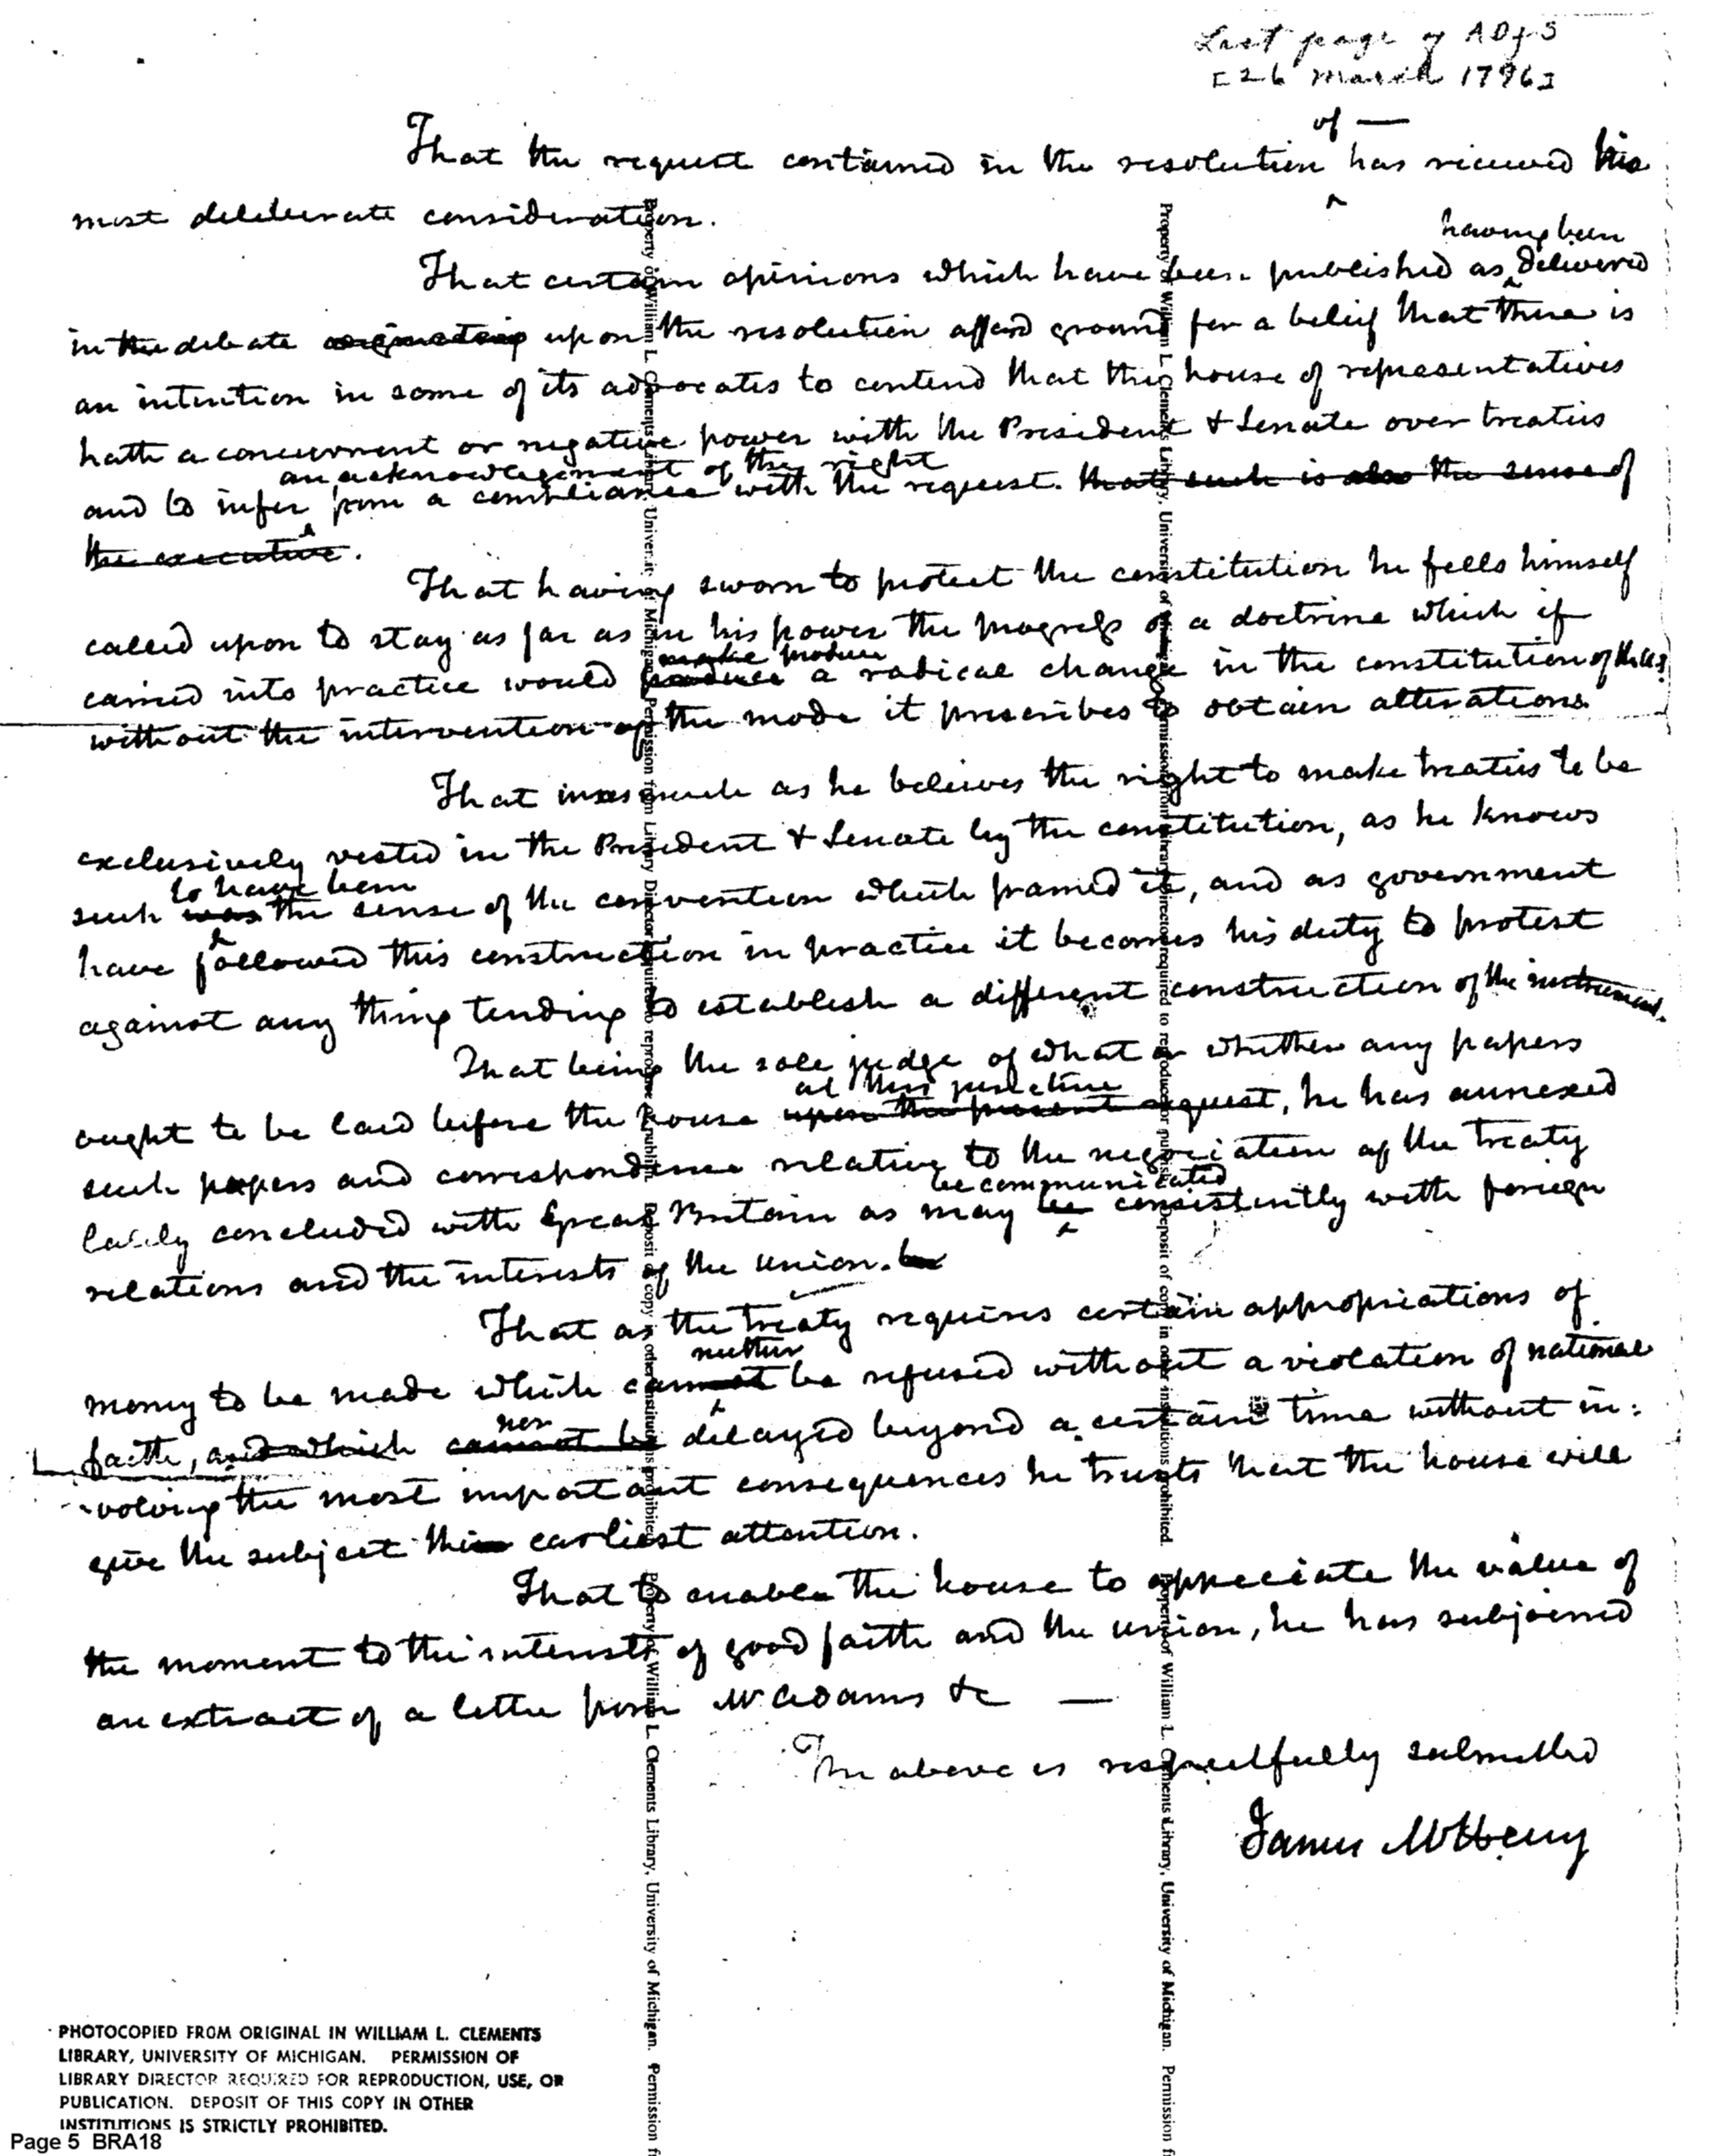 Last page of ADfS
[26 March 1796]
of —
That the request contained in the resolution ^ has received his
most deliberate consideration.
having been
That certain opinions which have been published as ^ delivered
in the debate upon the resolution afford ground for a belief that there is
an intention in some of its advocates to contend that the house of representatives
hath a concurrent or negative power with the President & Senate over treaties
an acknowlegement of the right
and to infer ^ from a compliance with the request. that such is also the sense of
the executive.
That having sworn to protect the constitution he fells himself
called upon to stay as far as in his power the progress of a doctrine which if
make produce
carried into practice would produce a radical change in the constitution of the U.S
without the intervention of the mode it prescribes to obtain alterations.
That inasmuch as he believes the right to make treaties to be
exclusively vested in the President & Senate by the constitution, as he knows
to have been
such was ^ the sense of the convention which framed it, and as government
have followed this construction in practice it becomes his duty to protest
against any thing tending to establish a different construction of the instrument.
That being the sole judge of what or whether any papers
at this juncture
ought to be laid before the house upon the present request, he has annexed
such papers and correspondence relative to the negociation of the treaty
be communicated
lately concluded with Great Britain as may be ^ consistently with foreign
relations and the interests of the union.
That as the treaty requires certain appropriations of
neither
money to be made which cannot ^ be refused without a violation of national
nor
faith, and which cannot be delayed beyond a certain time without in:
volving the most important consequences he trusts that the house will
give the subject their earliest attention.
That to enable the house to appreciate the value of
the moment to the interests of good faith and the union, he has subjoined
an extract of a letter from Mr Adams &c —
The above is respectfully submitted
James McHenry
Property of William L. Clements Library, University of Michigan. Permission from Library Director required to reproduce or publish. Deposit of copy in other institutions prohibited. Property of William L. Clements Library, University of Michigan. Permission f
Property of William L. Clements Library, University of Michigan. Permission from Library Director required to reproduce or publish. Deposit of copy in other institutions prohibited. Property of William L. Clements Library, University of Michigan. Permission f
PHOTOCOPIED FROM ORIGINAL IN WILLIAM L. CLEMENTS
LIBRARY, UNIVERSITY OF MICHIGAN. PERMISSION OF
LIBRARY DIRECTOR REQUIRED FOR REPRODUCTION, USE, OR
PUBLICATION. DEPOSIT OF THIS COPY IN OTHER
INSTITUTIONS IS STRICTLY PROHIBITED.
Page 5 BRA18